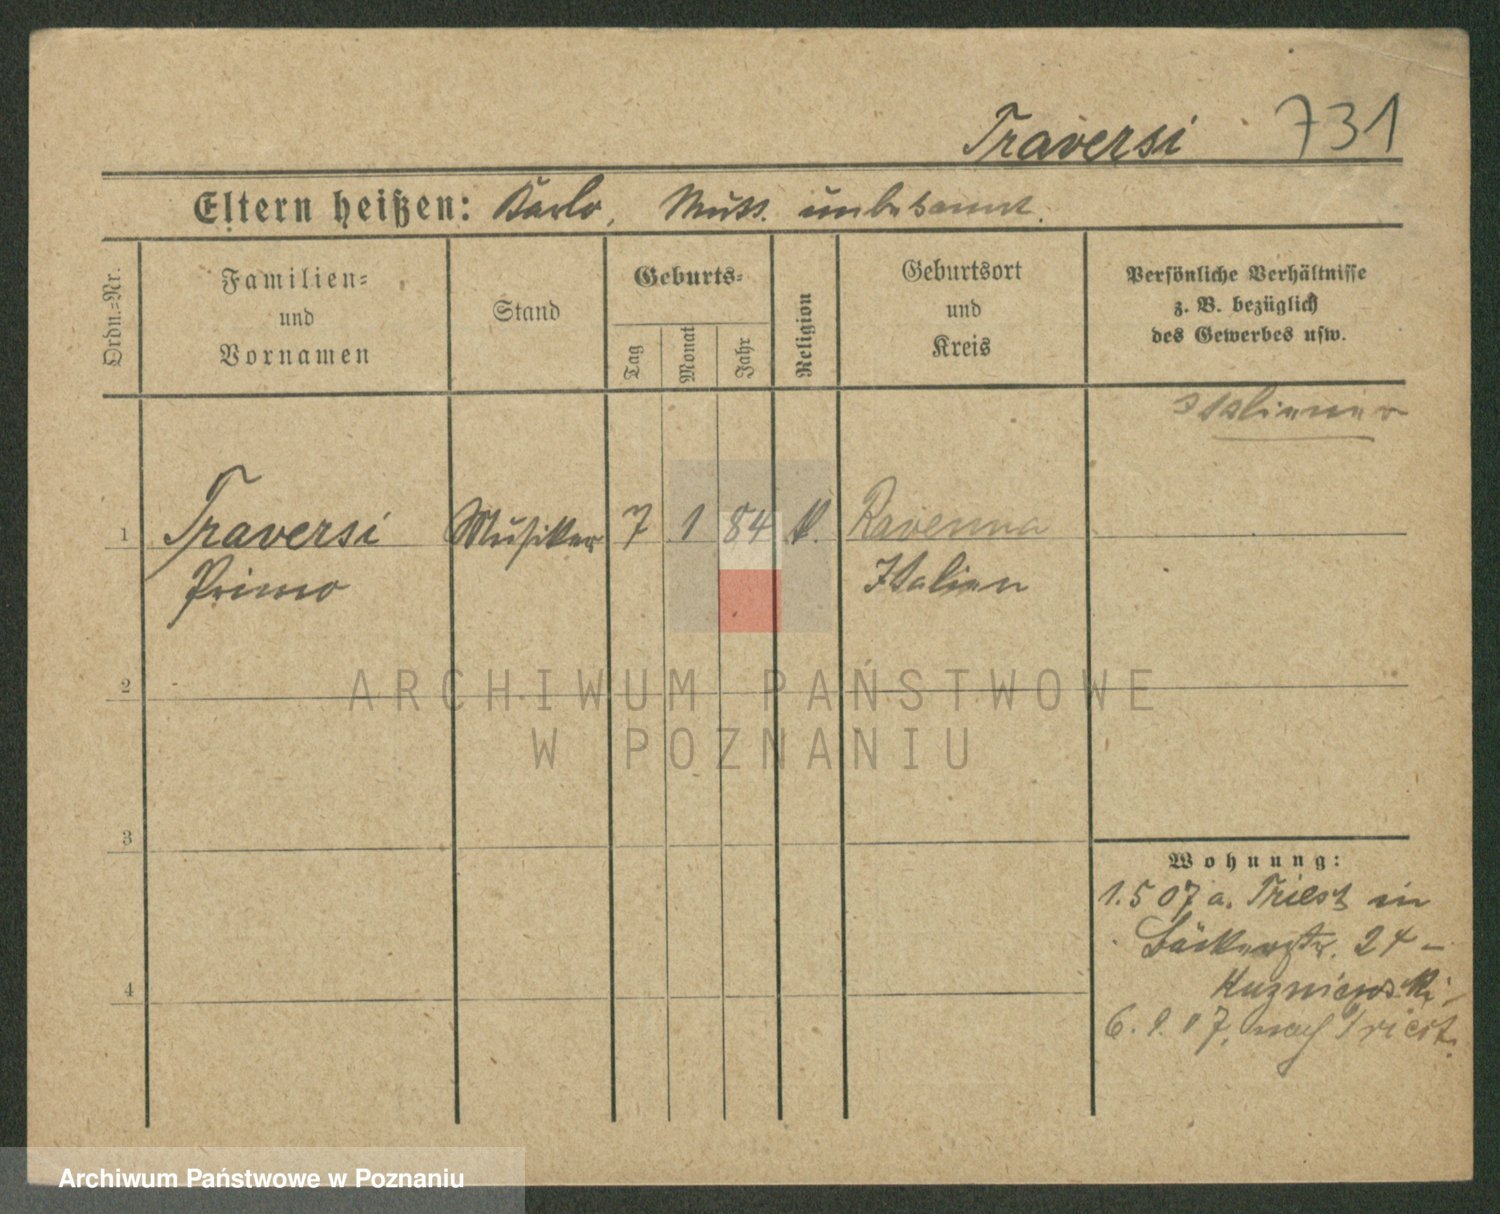 Traversi 731
Eltern heißen: Karlo, Mutt. unbekannt.
Ordn.=Nr.
Familien=
und
Vornamen
Stand
Geburts=
Tag
Monat
Jahr
Religion
Geburtsort
und
Kreis
Persönliche Verhältnisse
z. B. bezüglich
des Gewerbes usw.
Italiener
1 Traversi Musiker 7 1 84 k. Ravenna
Primo Italien
2
3
4
Wohnung:
1.5 07 a. Triest in
Bäckerstr. 24 –
Kuzniewski
6. 07, nach Triest.
ARCHIWUM PAŃSTWOWE
W POZNANIU
Archiwum Państwowe w Poznaniu